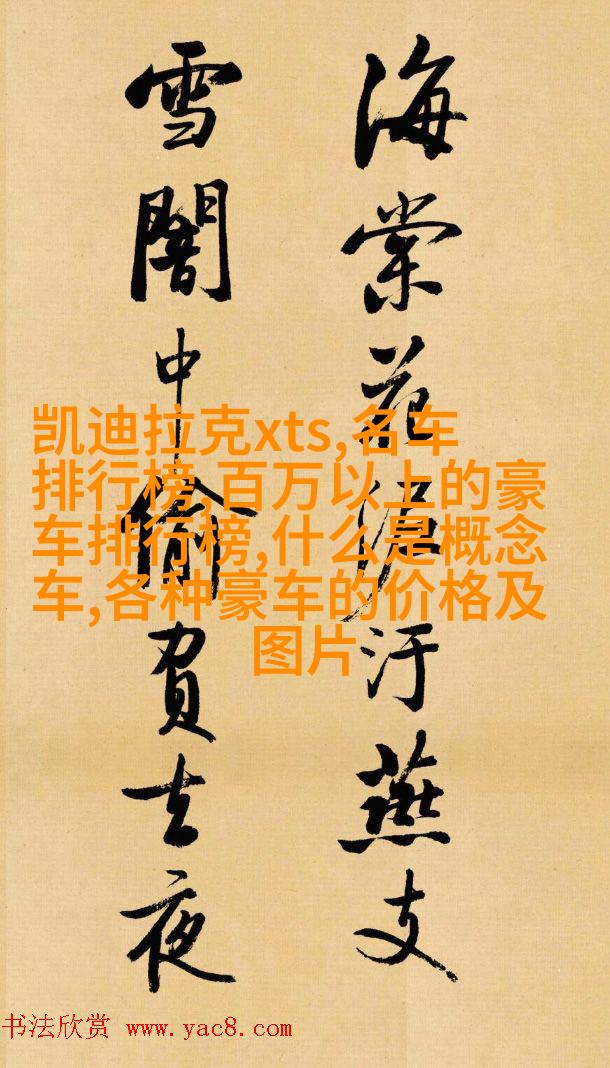 海棠花泥汙燕支
雪闇中偷負去夜
凯迪拉克xts,名车
排行榜,百万以上的豪
车排行榜,什么是概念
车,各种豪车的价格及
图片
书法欣赏 www.yac8.com